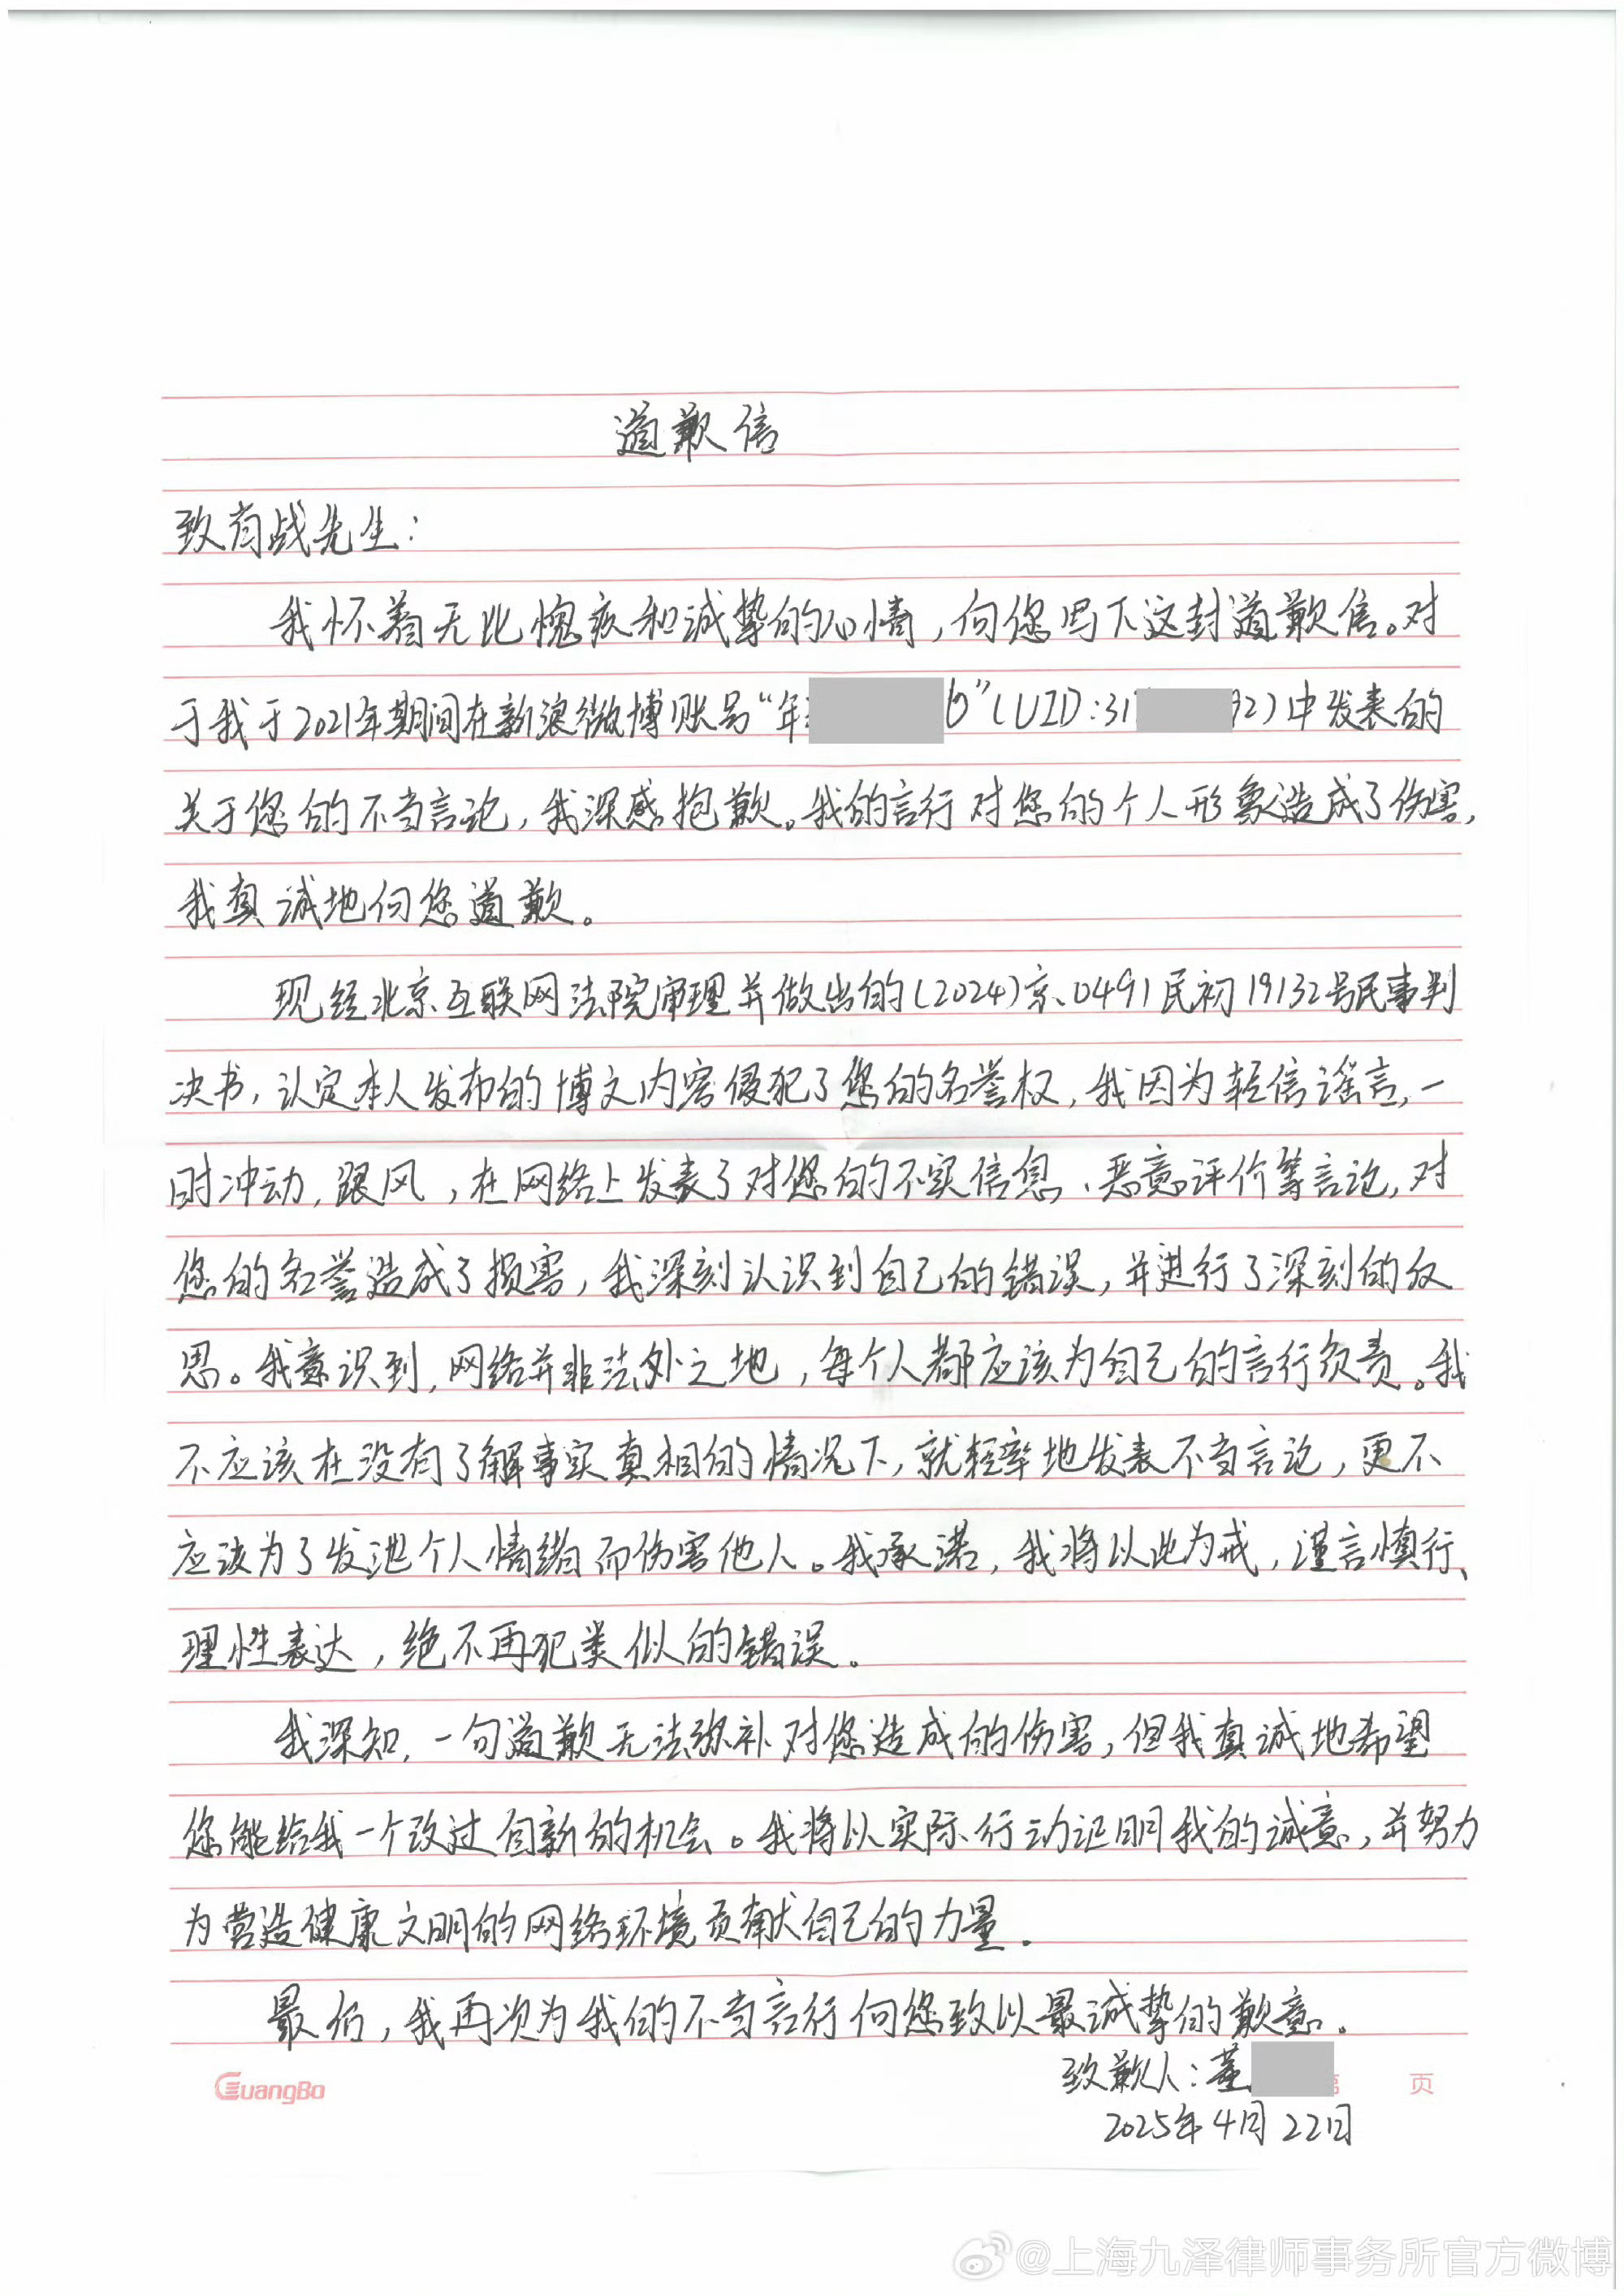 道歉信
致肖战先生：
我怀着无比愧疚和诚挚的心情，向您写下这封道歉信。对
于我于2021年期间在新浪微博账号“年 ”（UID：31 92）中发表的
关于您的不当言论，我深感抱歉。我的言行对您的个人形象造成了伤害，
我真诚地向您道歉。
现经北京互联网法院审理并做出的（2024）京0491民初19132号民事判
决书，认定本人发布的博文内容侵犯了您的名誉权，我因为轻信谣言，一
时冲动，跟风，在网络上发表了对您的不实信息、恶意评价等言论，对
您的名誉造成了损害，我深刻认识到自己的错误，并进行了深刻的反
思。我意识到，网络并非法外之地，每个人都应该为自己的言行负责。我
不应该在没有了解事实真相的情况下，就轻率地发表不当言论，更不
应该为了发泄个人情绪而伤害他人。我承诺，我将以此为戒，谨言慎行、
理性表达，绝不再犯类似的错误。
我深知，一句道歉无法弥补对您造成的伤害，但我真诚地希望
您能给我一个改过自新的机会。我将以实际行动证明我的诚意，并努力
为营造健康文明的网络环境贡献自己的力量。
最后，我再次为我的不当言行向您致以最诚挚的歉意。
致歉人：董
GuangBo 页
2025年4月22日
@上海九泽律师事务所官方微博